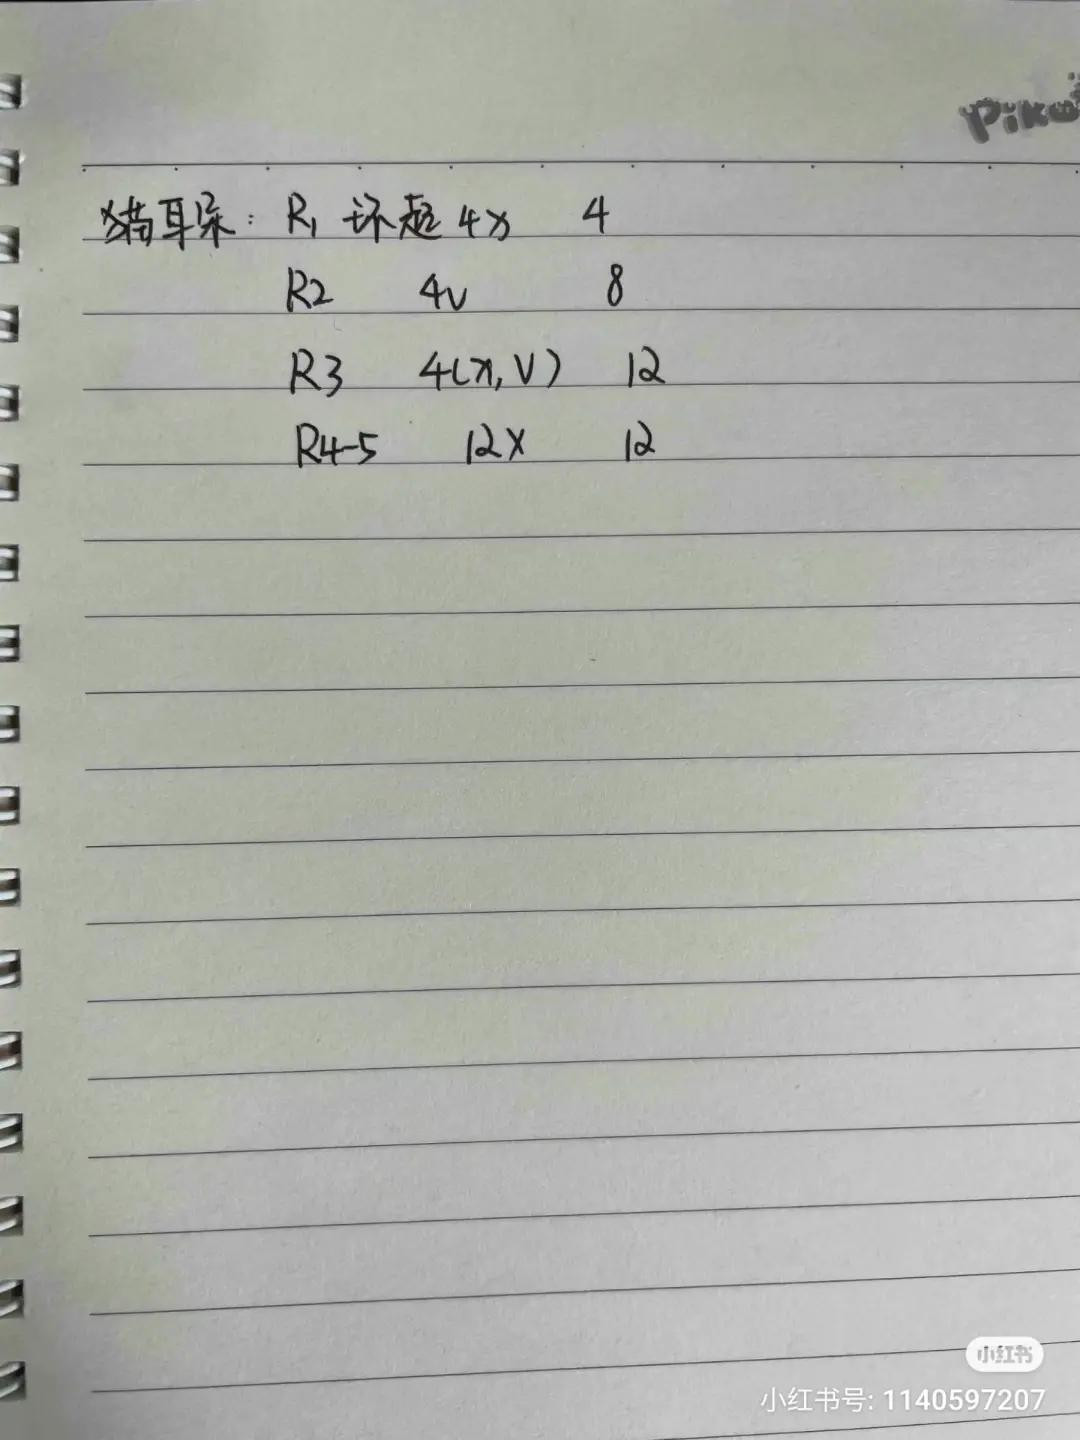 Piko
猫耳朵: R1 环起 4x 4
R2 4v 8
R3 4(x, v) 12
R4-5 12x 12
小红书
小红书号: 1140597207